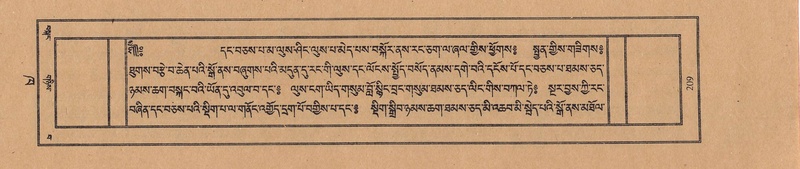 ༄༅༅། དང་བཅས་པ་མ་ལུས་ཤིང་ལུས་པ་མེད་པས་བསྐོར་ནས་རང་ཅག་ལ་ཞལ་གྱིས་ཕྱོགས༔ སྤྱན་གྱིས་གཟིགས༔
ཐུགས་བརྩེ་བ་ཆེན་པའི་སྒོ་ནས་བཞུགས་པའི་མདུན་དུ་རང་གི་ལུས་དང་ལོངས་སྤྱོད་བསོད་ནམས་དགེ་བའི་དངོས་པོ་དང་བཅས་པ་ཐམས་ཅད་
ཉམས་ཆག་བསྐང་བའི་ཡོན་དུ་འབུལ་བ་དང་༔ ལུས་ངག་ཡིད་གསུམ་བློ་སྙིང་བྲང་གསུམ་ཐམས་ཅད་ལིང་གིས་བཀལ་ཏེ༔ སྔར་བྱས་ཀྱི་རང་
བཞིན་དང་བཅས་པའི་སྡིག་པ་ལ་གནོང་འགྱོད་དྲག་པོ་བགྱིས་པ་དང་༔ སྡིག་སྒྲིབ་ཉམས་ཆག་ཐམས་ཅད་མི་འཆབ་མི་སྦེད་པའི་སྒོ་ནས་མཐོལ་
209